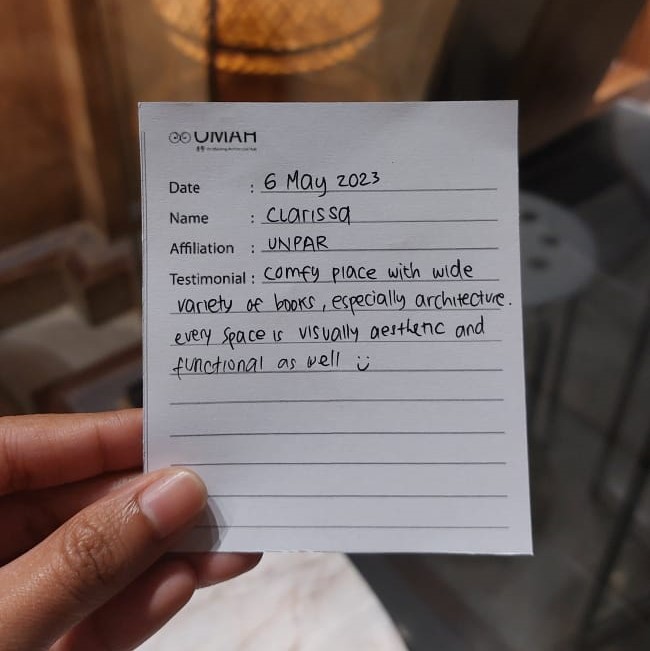 UMAH
Date : 6 May 2023
Name : Clarissa
Affiliation : UNPAR
Testimonial : comfy place with wide
variety of books, especially architecture.
every space is visually aesthetic and
functional as well ü